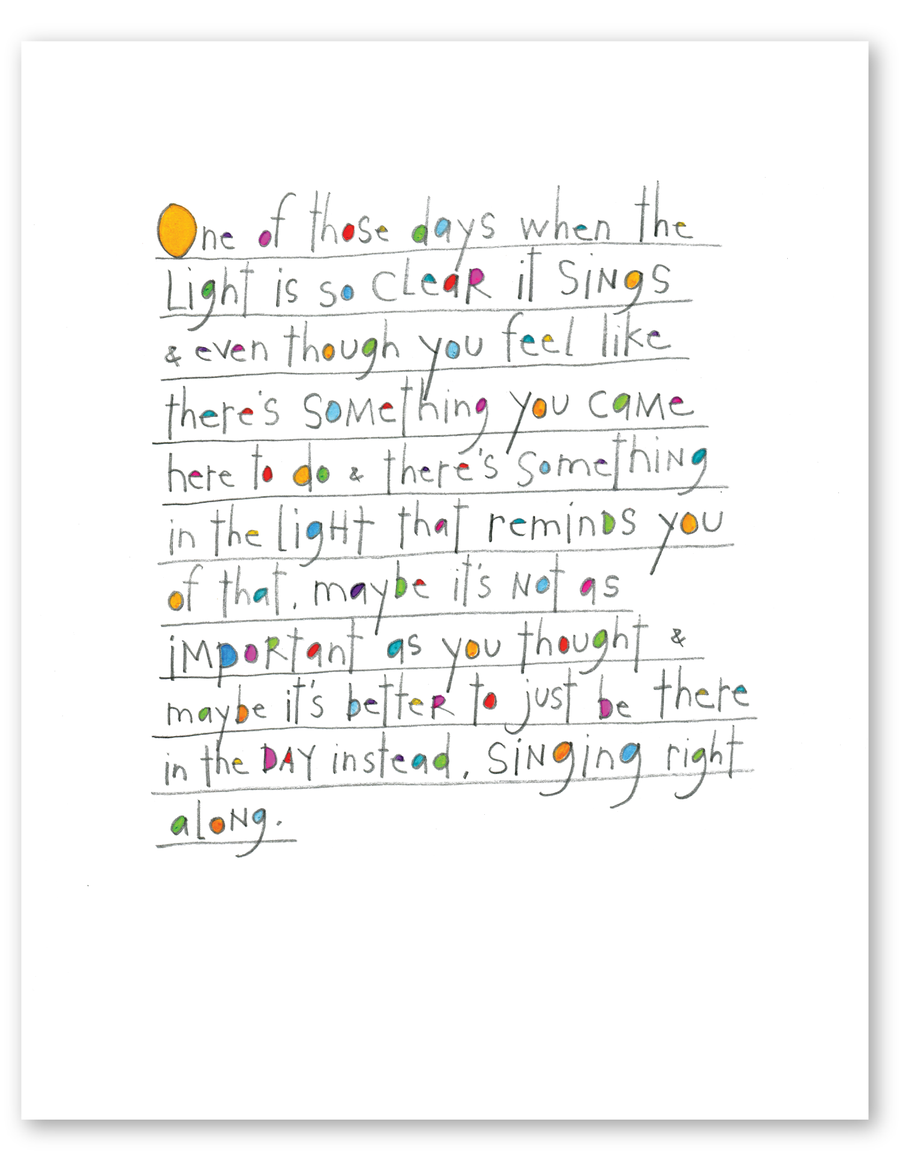 One of those days when the
Light is so CLeaR it SiNgS
& even though you feel like
there's SoMething you came
here to do & there's SomethiNg
in the LigHt that reminDS you
of that, maybe it's Not as
iMpoRtant as you thought &
maybe it's betteR to just be there
in the DAY instead, SiNging right
aloNg.